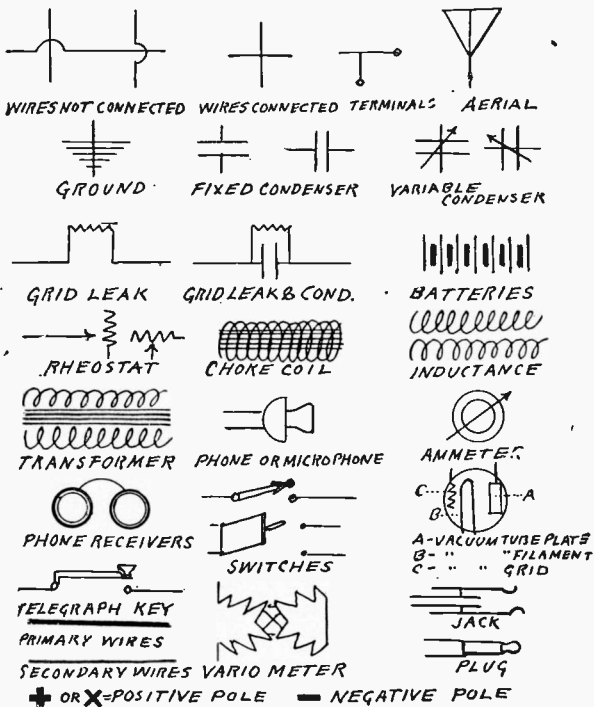 WIRES NOT CONNECTED WIRES CONNECTED TERMINALS AERIAL
GROUND FIXED CONDENSER VARIABLE CONDENSER
GRID LEAK GRID LEAK & COND. BATTERIES
RHEOSTAT CHOKE COIL INDUCTANCE
TRANSFORMER PHONE OR MICROPHONE AMMETER
C A
B
PHONE RECEIVERS SWITCHES
A-VACUUM TUBE PLATE
B- " " FILAMENT
C- " " GRID
TELEGRAPH KEY JACK
PRIMARY WIRES
SECONDARY WIRES VARIO METER PLUG
+ OR X=POSITIVE POLE - NEGATIVE POLE